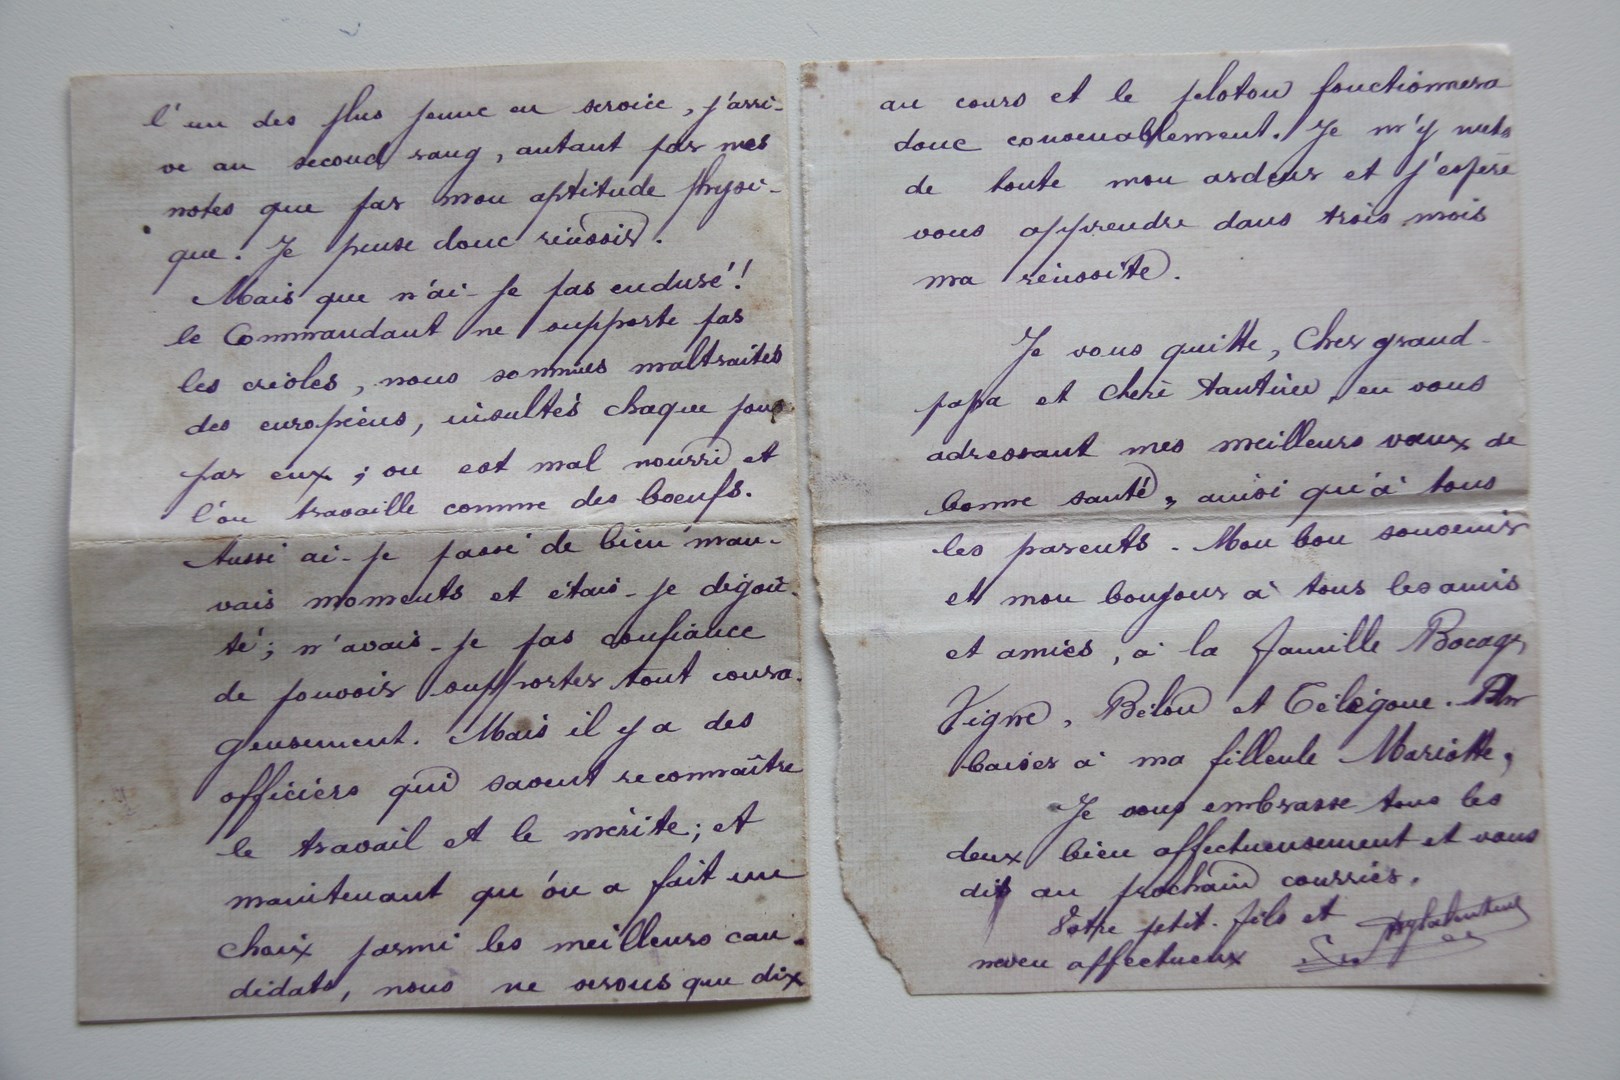 l'un des plus jeune en service, j'arri-
ve au second rang, autant par mes
notes que par mon aptitude physi-
que. Je pense donc réussir.
Mais que n'ai-je pas enduré!
le Commandant ne supporte pas
les créoles, nous sommes maltraités
des européens, insultés chaque jour
par eux; on est mal nourri et
l'on travaille comme des boeufs.
Aussi ai-je passé de bien mau-
vais moments et étais-je dégoû-
té; n'avais-je pas confiance
de pouvoir supporter tout coura-
geusement. Mais il y a des
officiers qui savent reconnaître
le travail et le mérite; et
maintenant qu'on a fait un
choix parmi les meilleurs can-
didats, nous ne serons que dix
au cours et le peloton fonctionnera
donc convenablement. Je m'y mets
de toute mon ardeur et j'espère
vous apprendre dans trois mois
ma réussite.
Je vous quitte, Cher grand-
papa et chère tantine, en vous
adressant mes meilleurs voeux de
bonne santé, ainsi qu'à tous
les parents. Mon bon souvenir
et mon bonjour à tous les amis
et amies, à la famille Bocage,
Vigne, Bélon et Télégone. Un
baiser à ma filleule Mariotte,
Je vous embrasse tous les
deux bien affectueusement et vous
dis au prochain courrier.
Votre petit-fils et
neveu affectueux